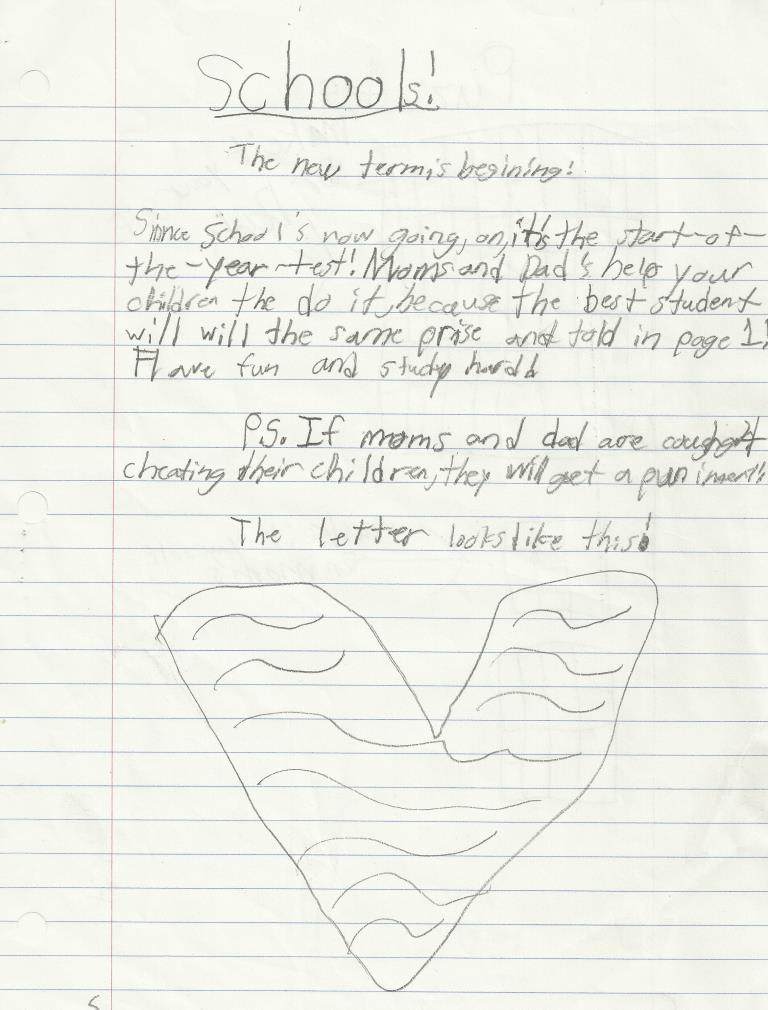 Schools!
The new term is begining!
Sinnce School's now going, on, it's the start-of-
the-year-test! Moms and Dad's help your
children the do it, because the best student
will will the same prise and told in page 1!
Have fun and study hard!
P.S. If moms and dad are coughght
cheating their children, they will get a puniment!
The letter looks like this!